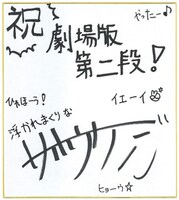 祝
劇場版
第二段!
やったー♪
ひゃほーう!
イエーイ
浮かれまくりな
ヒョーウ☆